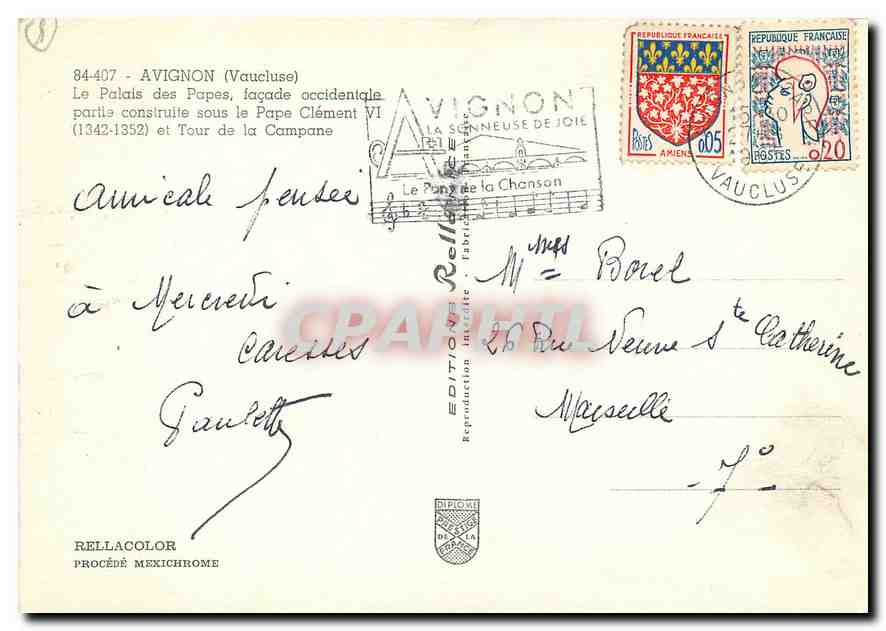 84-407 - AVIGNON (Vaucluse)
Le Palais des Papes, façade occidentale
partie construite sous le Pape Clément VI
(1342-1352) et Tour de la Campane
AVIGNON
LA SONNEUSE DE JOIE
ART
Le Pont de la Chanson
REPUBLIQUE FRANÇAISE
POSTES
0,05
AMIENS
REPUBLIQUE FRANÇAISE
POSTES
0,20
VAUCLUSE
Amicale pensée
à Mercredi
Caresses
Paulette
EDITIONS Rella
Reproduction interdite - Fabrication Française
CPAPHIL
Mmes Borel
26 Rue Neuve Ste Catherine
Marseille
7°
DIPLOME
PRESTIGE
DE LA
FRANCE
RELLACOLOR
PROCÉDÉ MEXICHROME